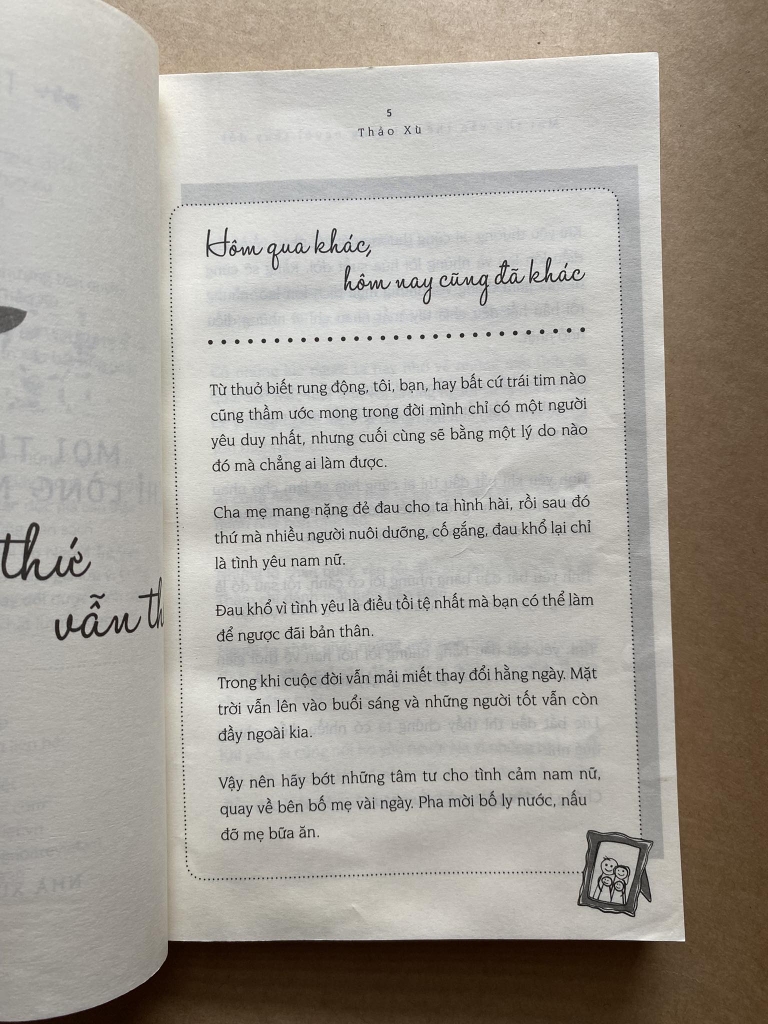 5
Thảo Xù
Hôm qua khác,
hôm nay cũng đã khác
Từ thuở biết rung động, tôi, bạn, hay bất cứ trái tim nào
cũng thầm ước mong trong đời mình chỉ có một người
yêu duy nhất, nhưng cuối cùng sẽ bằng một lý do nào
đó mà chẳng ai làm được.
Cha mẹ mang nặng đẻ đau cho ta hình hài, rồi sau đó
thứ mà nhiều người nuôi dưỡng, cố gắng, đau khổ lại chỉ
là tình yêu nam nữ.
Đau khổ vì tình yêu là điều tồi tệ nhất mà bạn có thể làm
để ngược đãi bản thân.
Trong khi cuộc đời vẫn mải miết thay đổi hằng ngày. Mặt
trời vẫn lên vào buổi sáng và những người tốt vẫn còn
đầy ngoài kia.
Vậy nên hãy bớt những tâm tư cho tình cảm nam nữ,
quay về bên bố mẹ vài ngày. Pha mời bố ly nước, nấu
đỡ mẹ bữa ăn.
thứ
vẫn th